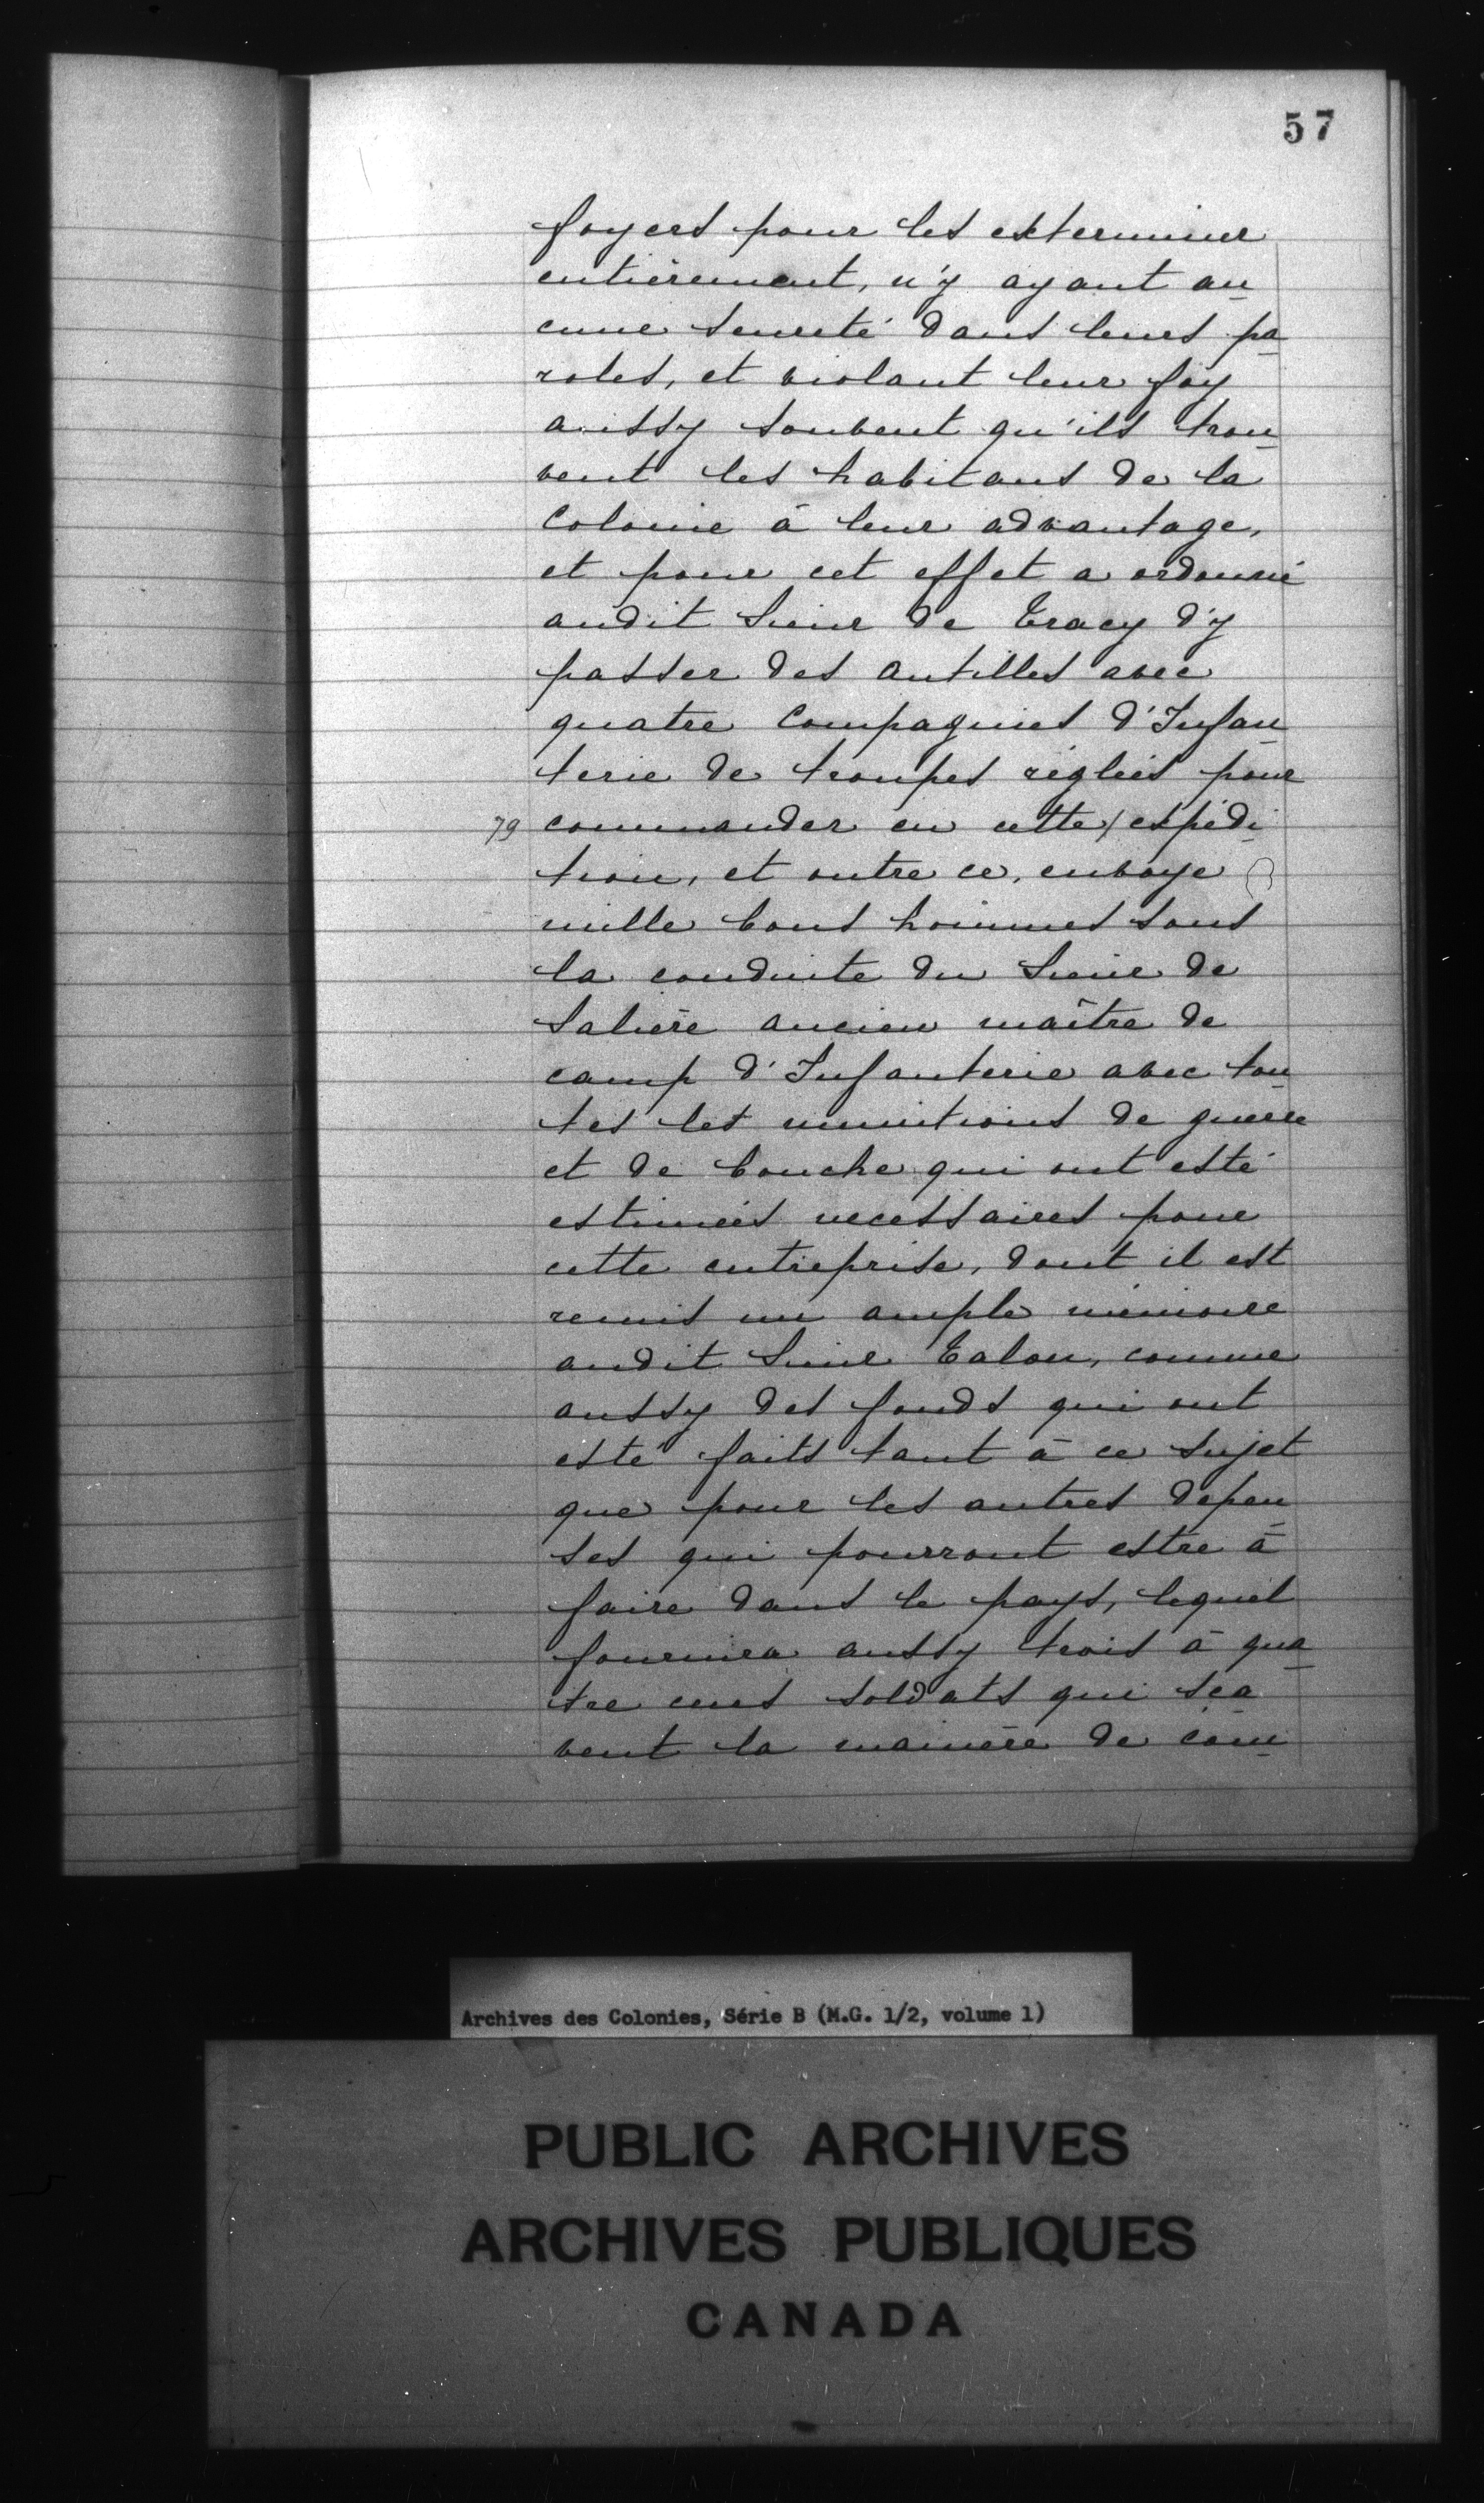 57
foyers pour les exterminer
entièrement, n'y ayant au
cune seureté dans leurs pa
roles, et violant leur foy
aussy souvent qu'ils trou
vent les habitans de la
Colonie à leur advantage,
et pour cet effet a ordonné
audit Sieur de Tracy d'y
passer des Antilles avec
quatre Compagnies d'Infan
terie de troupes réglées pour
79 commander en cette / expédi
tion, et outre ce, envoye
mille bons hommes sous
la conduite du Sieur de
Salière ancien maître de
camp d'Infanterie avec tou
tes les munitions de guerre
et de bouche qui ont esté
estimées necessaires pour
cette entreprise, dont il est
remis un ample mémoire
audit Sieur Talon, comme
aussy des fonds qui ont
esté faits tant à ce sujet
que pour les autres depen
ses qui pourront estre à
faire dans le pays, lequel
fournira aussy trois à qua
tre cens soldats qui sça
vent la manière de com
Archives des Colonies, Série B (M.G. 1/2, volume 1)
PUBLIC ARCHIVES
ARCHIVES PUBLIQUES
CANADA